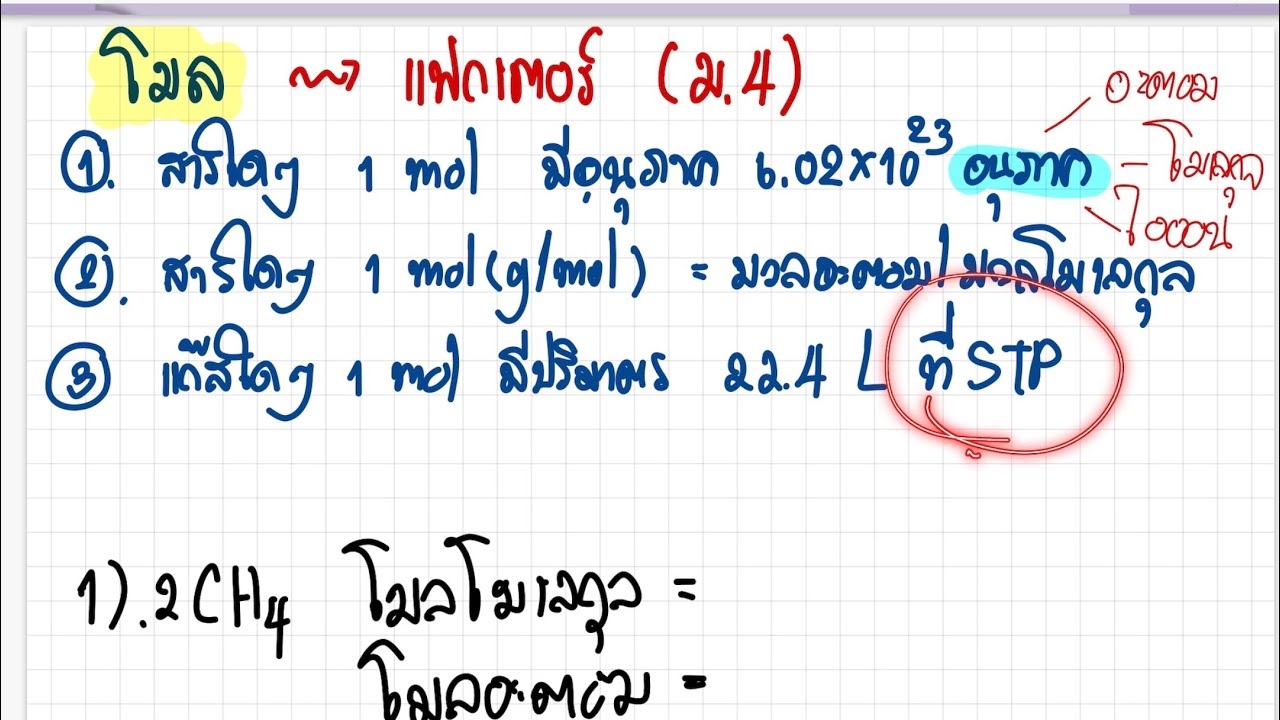 โมล → แฟกเตอร์ (ม.4)
①. สารใดๆ 1 mol มีอนุภาค 6.02×10²³ อนุภาค
อะตอม
โมเลกุล
ไอออน
②. สารใดๆ 1 mol (g/mol) = มวลอะตอม/มวลโมเลกุล
③ แก๊สใดๆ 1 mol มีปริมาตร 22.4 L ที่ STP
1). 2CH₄ โมลโมเลกุล =
โมลอะตอม =